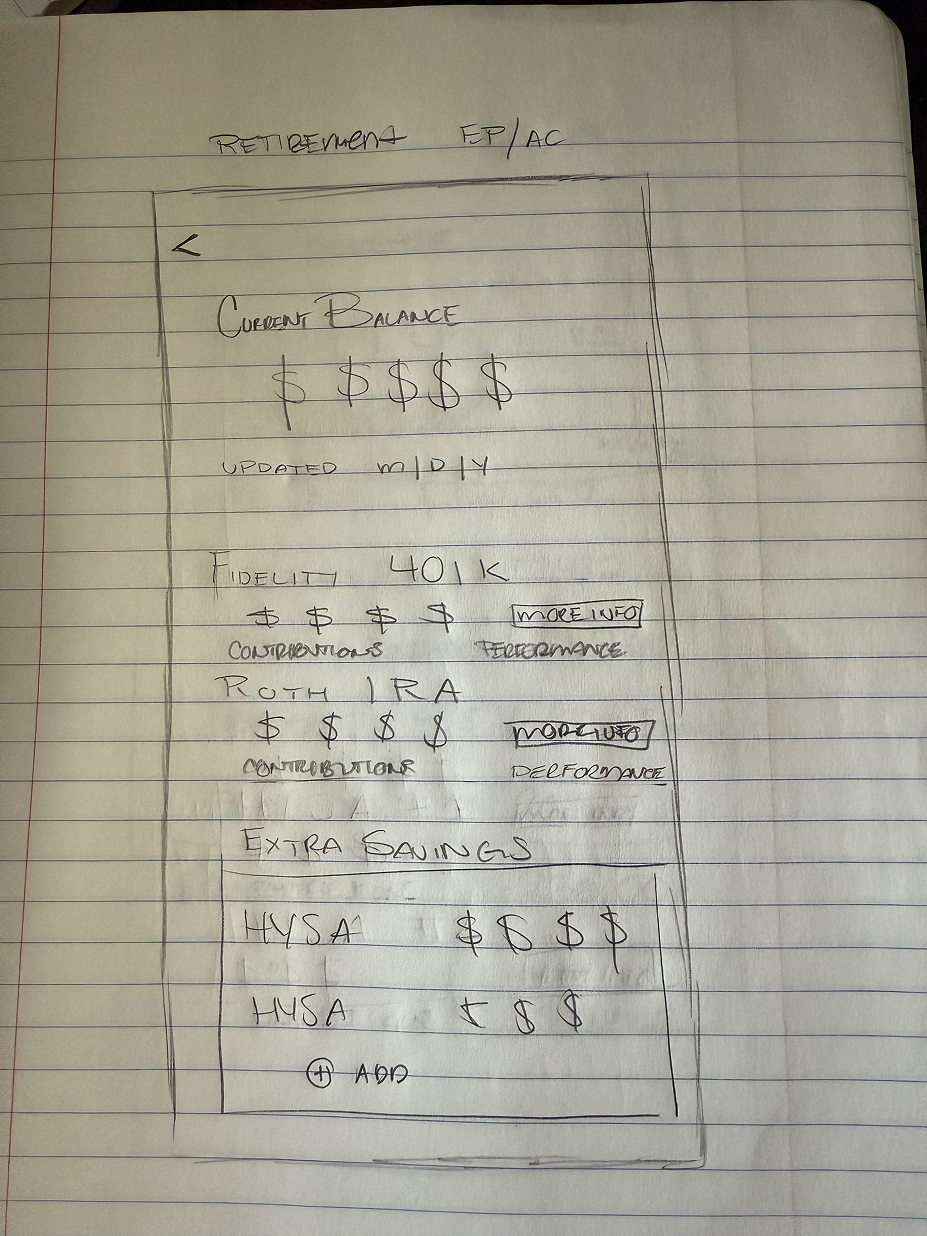 RETIREMENT EP/AC
<
CURRENT BALANCE
$ $ $ $ $
UPDATED M/D/Y
FIDELITY 401K
$ $ $ $ MORE INFO
CONTRIBUTIONS PERFORMANCE
ROTH IRA
$ $ $ $ MORE INFO
CONTRIBUTIONS PERFORMANCE
EXTRA SAVINGS
HYSA $ $ $ $
HYSA $ $
+ ADD